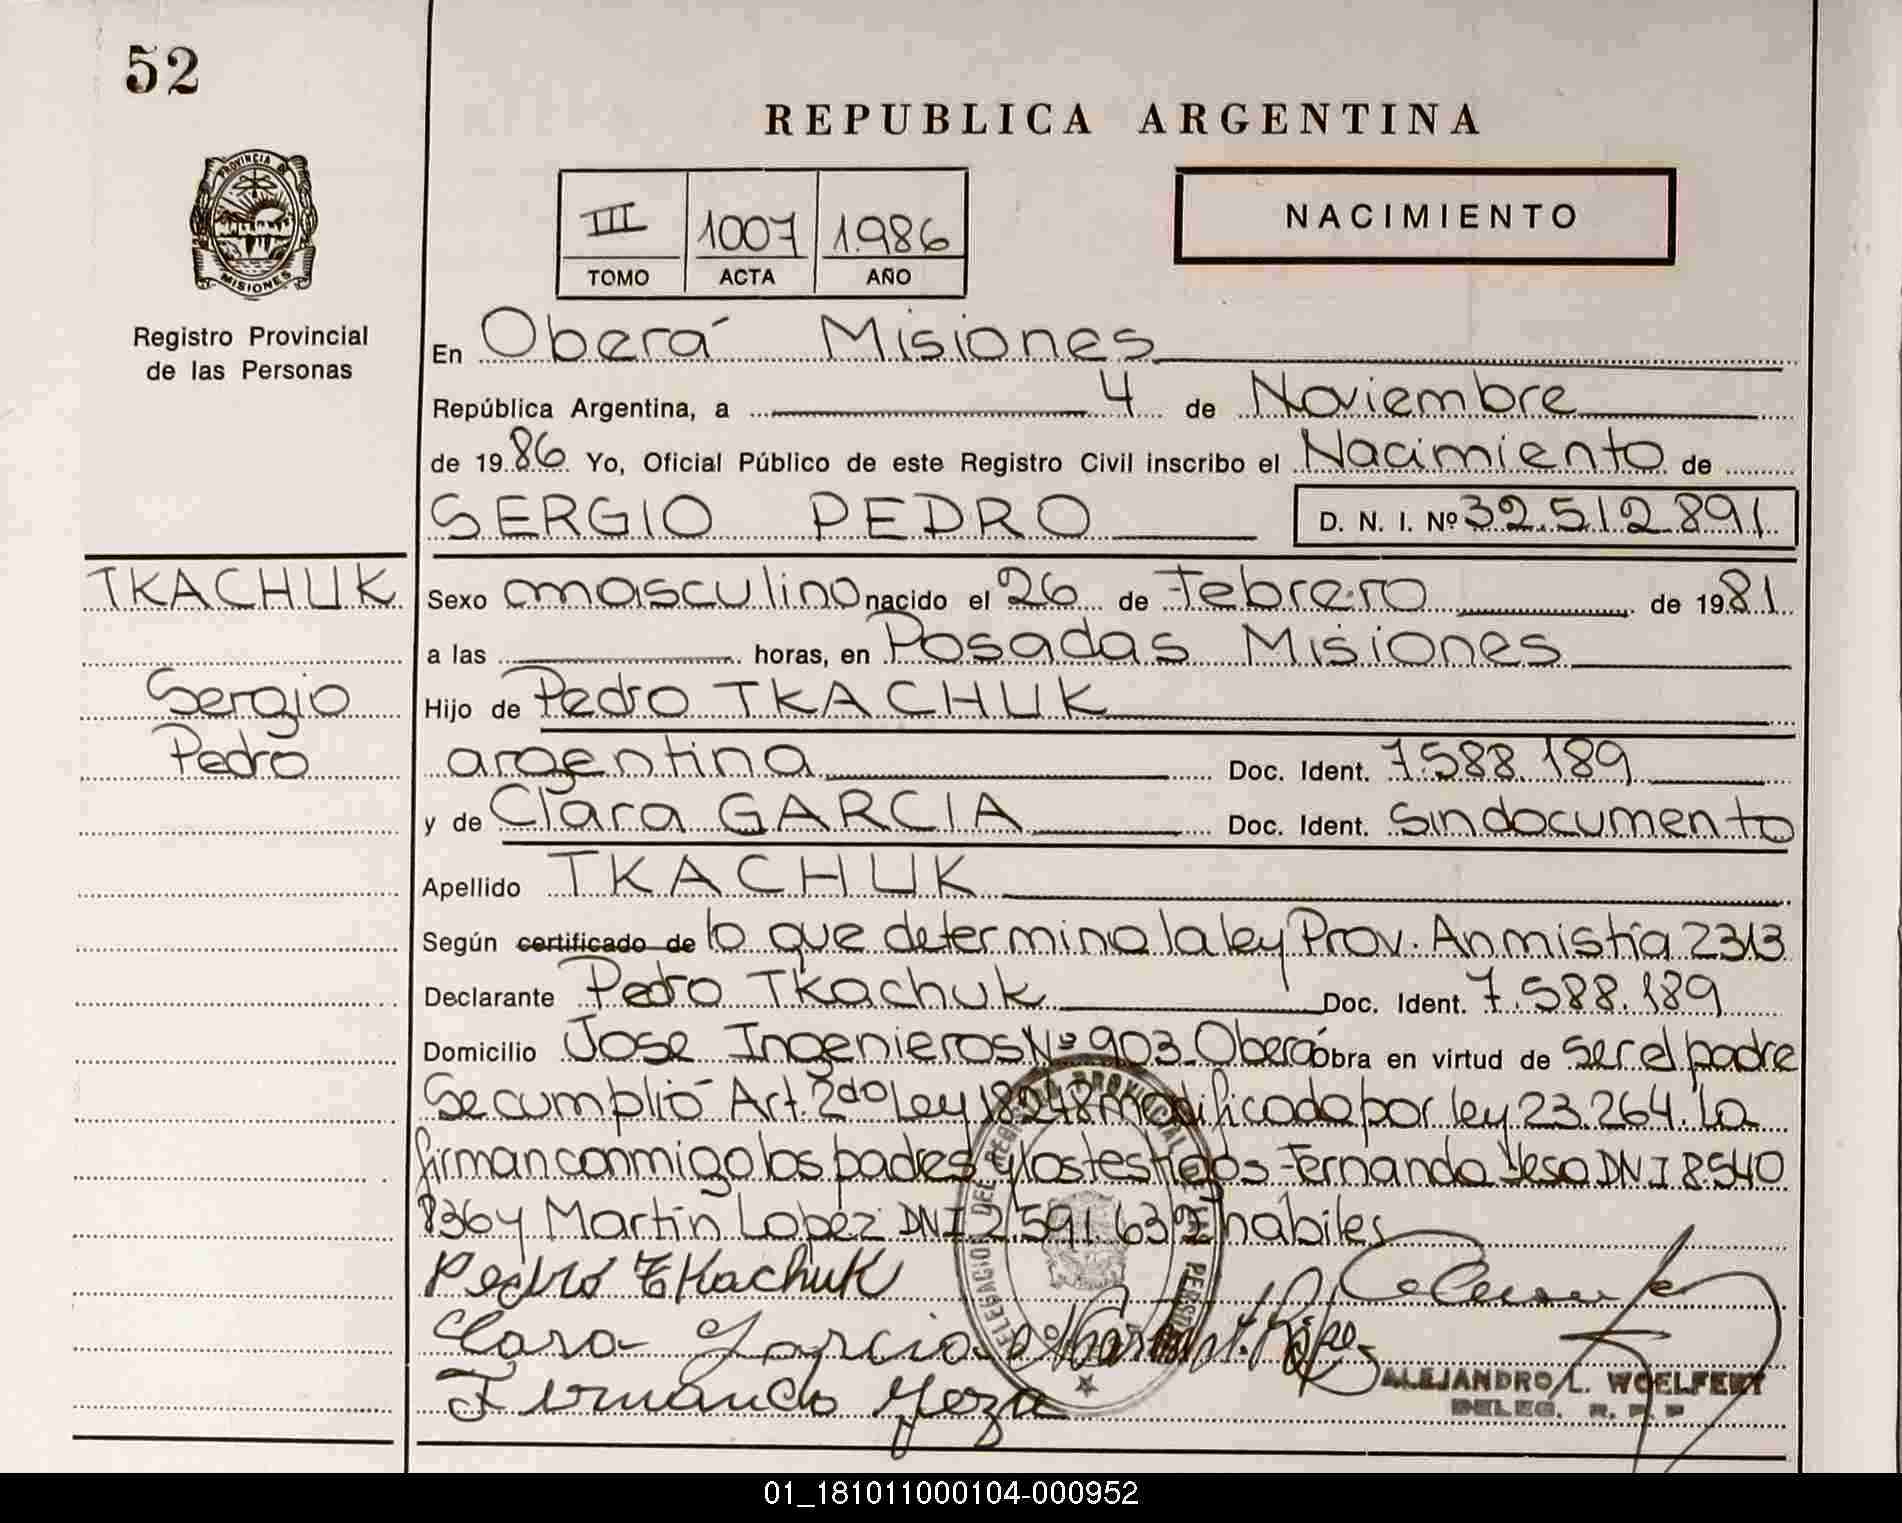 52
REPUBLICA ARGENTINA
PROVINCIA DE
MISIONES
Registro Provincial
de las Personas
III 1007 1.986
TOMO ACTA AÑO
NACIMIENTO
En Oberá Misiones
República Argentina, a 4 de Noviembre
de 1986 Yo, Oficial Público de este Registro Civil inscribo el Nacimiento de
SERGIO PEDRO D. N. I. Nº 32.512.891
TKACHUK
Sergio
Pedro
Sexo masculino nacido el 26 de Febrero de 1981
a las horas, en Posadas Misiones
Hijo de Pedro TKACHUK
argentina Doc. Ident. 7.588.189
y de Clara GARCIA Doc. Ident. Sin documento
Apellido TKACHUK
Según certificado de lo que determina la ley Prov. Anmistía 2313
Declarante Pedro Tkachuk Doc. Ident. 7.588.189
Domicilio Jose Ingenieros Nº 903 Oberá Obra en virtud de ser el padre
Se cumplió Art. 2do Ley 18248 modificada por ley 23.264. La
firman conmigo los padres y los testigos Fernando Yesa DNI 8.540
836 y Martin Lopez DNI 2.591.632 hábiles
Pedro Tkachuk
Clara Garcia
Fernando Yeza
ALEJANDRO L. WOELFERT
DELEG. R. P. P
01_181011000104-000952